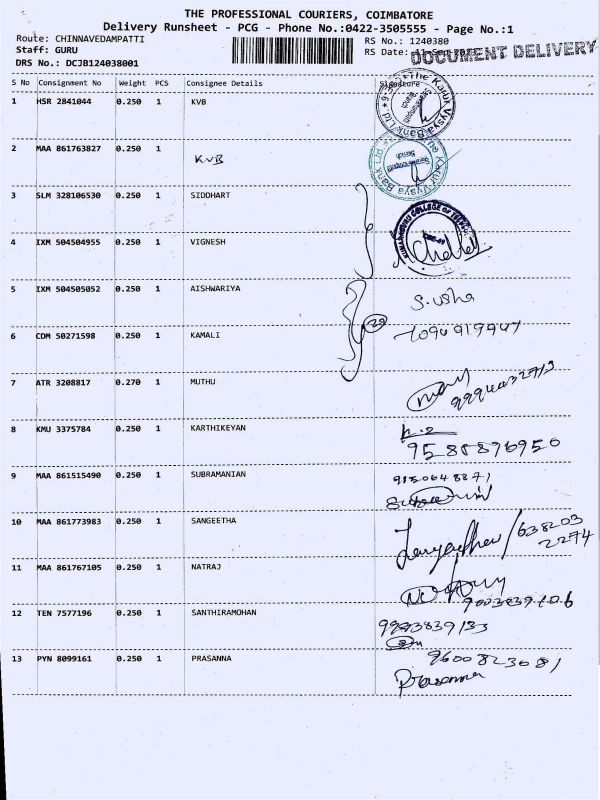 THE PROFESSIONAL COURIERS, COIMBATORE
Delivery Runsheet - PCG - Phone No.:0422-3505555 - Page No.:1
Route: CHINNAVEDAMPATTI
RS No.: 1240380
Staff: GURU
RS Date:
DOCUMENT DELIVERY
DRS No.: DCJB124038001
S No Consignment No Weight PCS Consignee Details Signature
1 HSR 2841044 0.250 1 KVB
2 MAA 861763827 0.250 1 KVB
3 SLM 328106530 0.250 1 SIDDHART
4 IXM 504504955 0.250 1 VIGNESH
5 IXM 504505052 0.250 1 AISHWARIYA
S. Usha
6 CDM 50271598 0.250 1 KAMALI
7 ATR 3208817 0.270 1 MUTHU
8 KMU 3375784 0.250 1 KARTHIKEYAN
9588896950
9 MAA 861515490 0.250 1 SUBRAMANIAN
10 MAA 861773983 0.250 1 SANGEETHA
638203
2274
11 MAA 861767105 0.250 1 NATRAJ
12 TEN 7577196 0.250 1 SANTHIRAMOHAN
13 PYN 8099161 0.250 1 PRASANNA
9600823081
Prasanna